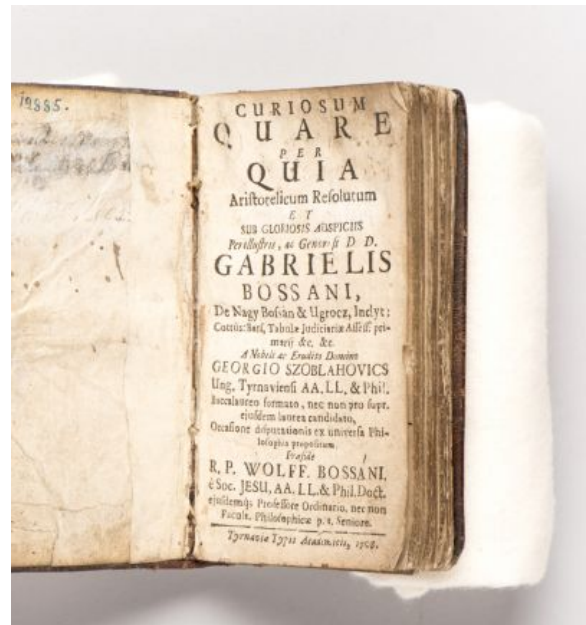 19885.
CURIOSUM
QUARE
PER
QUIA
Aristotelicum Resolutum
ET
SUB GLORIOSIS AUSPICIIS
Perillustris, ac Generosi D D.
GABRIELIS
BOSSANI,
De Nagy Bossàn & Ugrocz, Inclyt:
Cottûs: Bars, Tabulæ Judiciariæ Assess: pri-
marij &c. &c.
A Nobili ac Erudito Domino
GEORGIO SZOBLAHOVICS
Ung. Tyrnaviensi AA. LL. & Phil.
Baccalaureo formato, nec non pro supr.
ejusdem laurea candidato,
Occasione disputationis ex universa Phi-
losophia propositum.
Præside
R. P. WOLFF. BOSSANI,
è Soc. JESU, AA. LL. & Phil. Doct.
ejusdemq; Professore Ordinario, nec non
Facult. Philosophicæ p. t. Seniore.
Tyrnaviæ Typis Academicis,